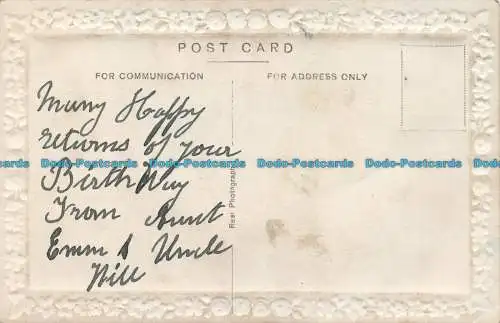 POST CARD
FOR COMMUNICATION
FOR ADDRESS ONLY
Many Happy
returns of your
Birthday
From Aunt
Emm & Uncle
Bill
Real Photograph
Dodo-Postcards Dodo-Postcards Dodo-Postcards Dodo-Postcards Dodo-Postcards